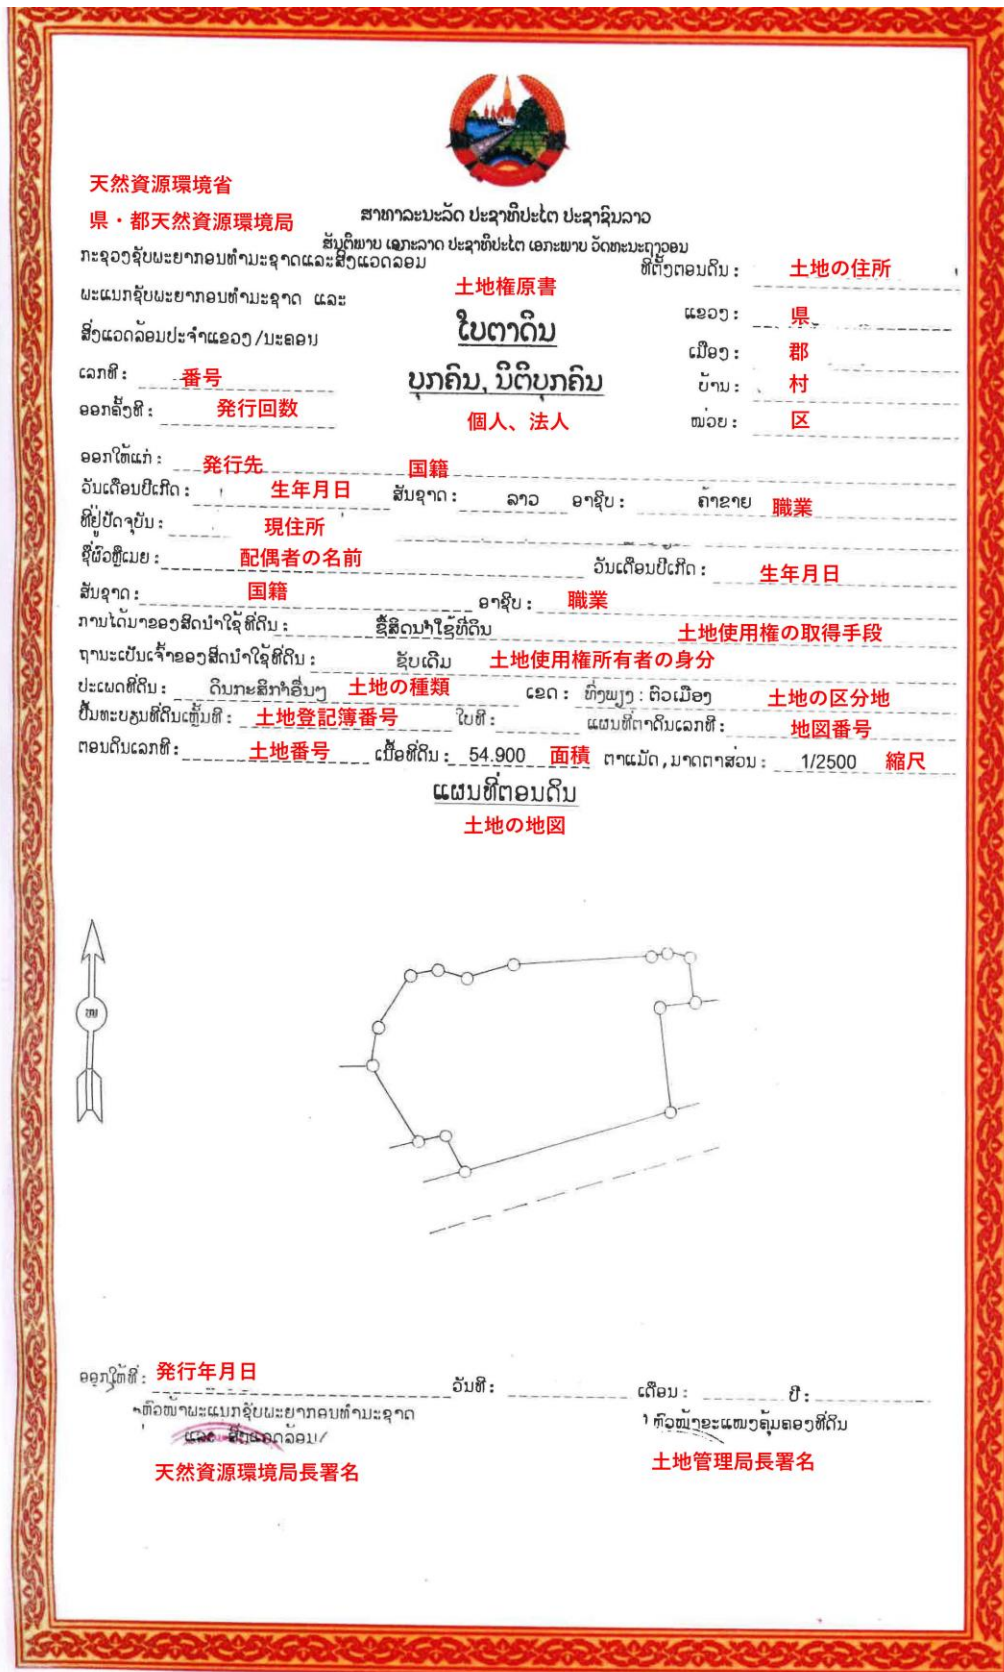 天然資源環境省
県・都天然資源環境局
ສາທາລະນະລັດ ປະຊາທິປະໄຕ ປະຊາຊົນລາວ
ສັນຕິພາບ ເອກະລາດ ປະຊາທິປະໄຕ ເອກະພາບ ວັດທະນະຖາວອນ
ກະຊວງຊັບພະຍາກອນທຳມະຊາດແລະສິ່ງແວດລ້ອມ
ທີ່ຕັ້ງຕອນດິນ : 土地の住所
ພະແນກຊັບພະຍາກອນທຳມະຊາດ ແລະ
土地権原書
ສິ່ງແວດລ້ອມປະຈຳແຂວງ/ນະຄອນ
ໃບຕາດິນ
ແຂວງ : 県
ເມືອງ : 郡
ເລກທີ : 番号
ບຸກຄົນ, ນິຕິບຸກຄົນ
ບ້ານ : 村
ອອກຄັ້ງທີ : 発行回数
個人、法人
ໜ່ວຍ : 区
ອອກໃຫ້ແກ່ : 発行先 国籍
ວັນເດືອນປີເກີດ : 生年月日 ສັນຊາດ : ລາວ ອາຊີບ : ຄ້າຂາຍ 職業
ທີ່ຢູ່ປັດຈຸບັນ : 現住所
ຊື່ຜົວຫຼືເມຍ : 配偶者の名前 ວັນເດືອນປີເກີດ : 生年月日
ສັນຊາດ : 国籍 ອາຊີບ : 職業
ການໄດ້ມາຂອງສິດນຳໃຊ້ທີ່ດິນ : ຊື້ສິດນຳໃຊ້ທີ່ດິນ 土地使用権の取得手段
ຖານະເປັນເຈົ້າຂອງສິດນຳໃຊ້ທີ່ດິນ : ຊັບເດີມ 土地使用権所有者の身分
ປະເພດທີ່ດິນ : ດິນກະສິກຳອື່ນໆ 土地の種類 ເຂດ : ທົ່ງພຽງ : ຕົວເມືອງ 土地の区分地
ປຶ້ມທະບຽນທີ່ດິນເຫຼັ້ມທີ : 土地登記簿番号 ໃບທີ : ແຜນທີ່ຕາດິນເລກທີ : 地図番号
ຕອນດິນເລກທີ : 土地番号 ເນື້ອທີ່ດິນ : 54.900 面積 ຕາແມັດ , ມາດຕາສ່ວນ : 1/2500 縮尺
ແຜນທີ່ຕອນດິນ
土地の地図
ໜ
ອອກໃຫ້ທີ່ : 発行年月日 ວັນທີ : ເດືອນ : ປີ :
ຫົວໜ້າພະແນກຊັບພະຍາກອນທຳມະຊາດ
ແລະ ສິ່ງແວດລ້ອມ
ຫົວໜ້າຂະແໜງຄຸ້ມຄອງທີ່ດິນ
天然資源環境局長署名
土地管理局長署名